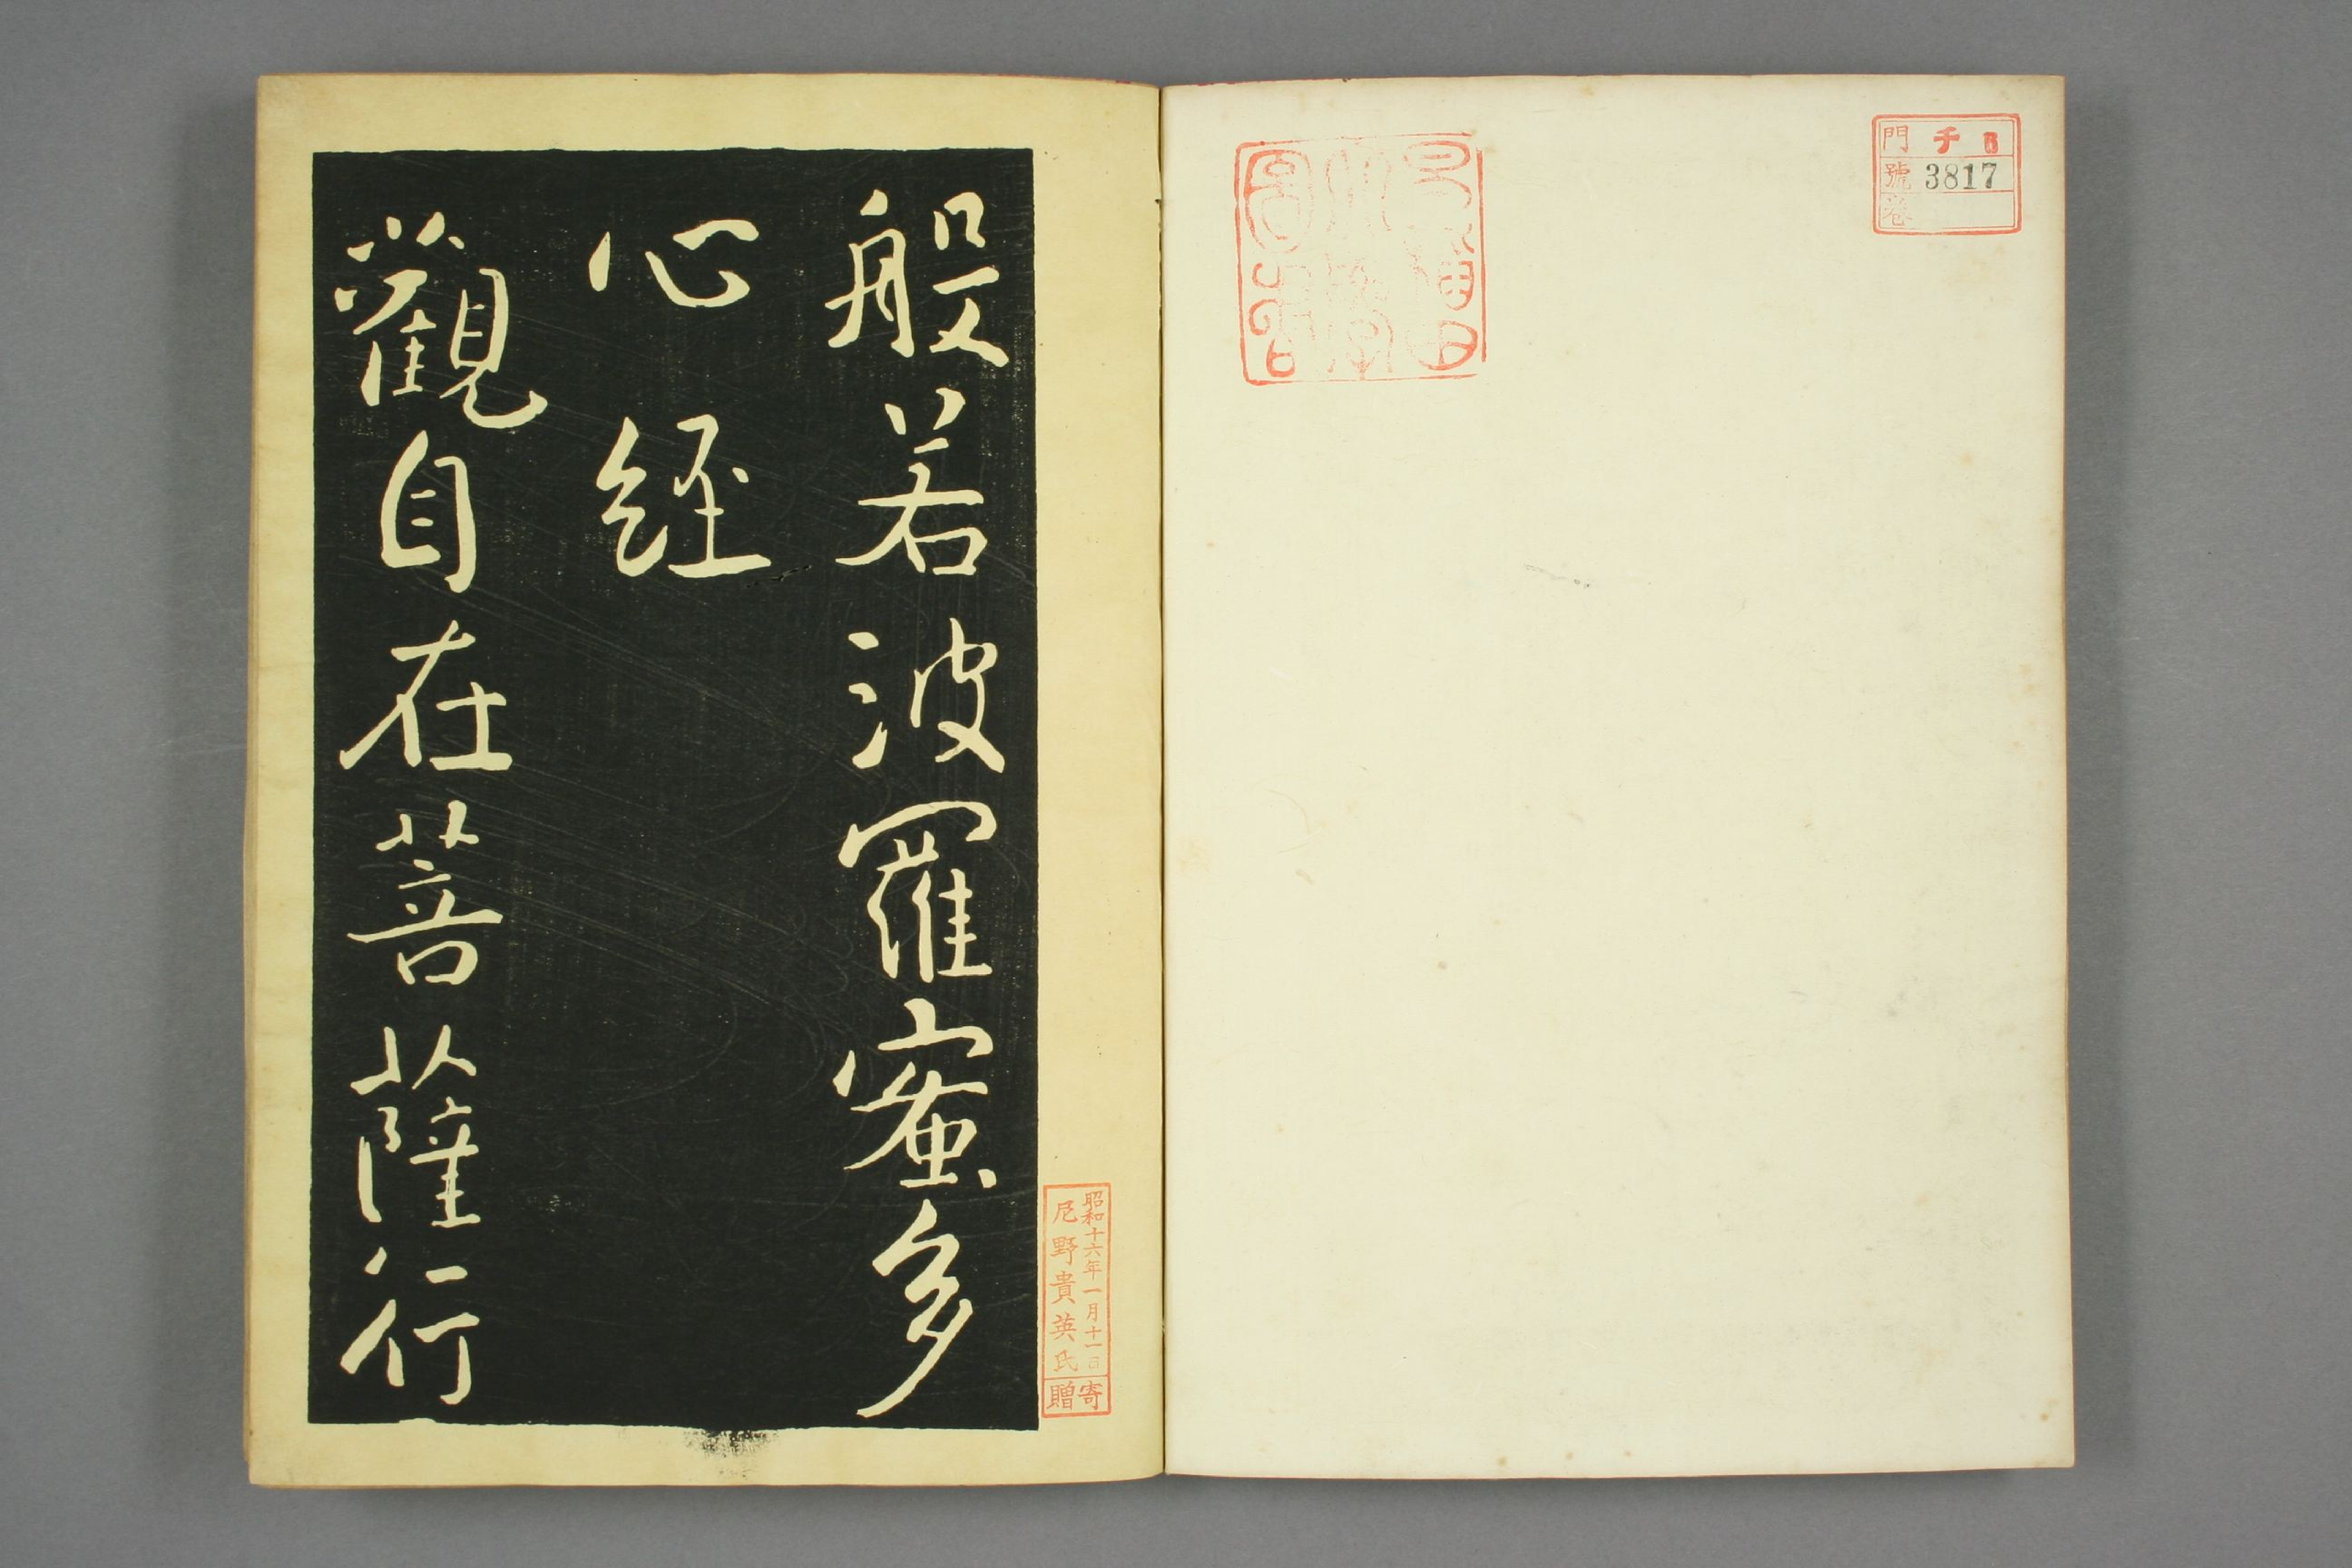 門 チ 6
號 3817
卷
般若波羅蜜多
心經
觀自在菩薩行
昭和十六年一月十一日
尼野貴英氏
寄贈